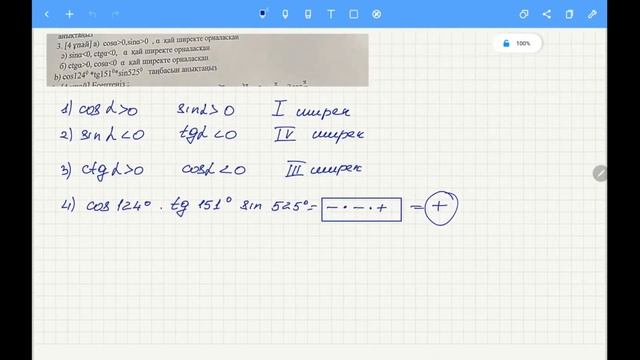 анықтаңыз
3. [4 ұпай] а) cosα>0,sinα>0 , α қай ширекте орналасқан
ә) sinα<0, ctgα<0, α қай ширекте орналасқан
б) ctgα>0, cosα<0 α қай ширекте орналасқан
b) cos124⁰ *tg151⁰*sin525⁰ таңбасын анықтаңыз
100%
1) cos α>0 sinα>0 I ширек
2) sin α<0 tgα<0 IV ширек
3) ctgα>0 cosα<0 III ширек
4) cos 124⁰ · tg 151⁰ sin 525⁰= − · − · + = +